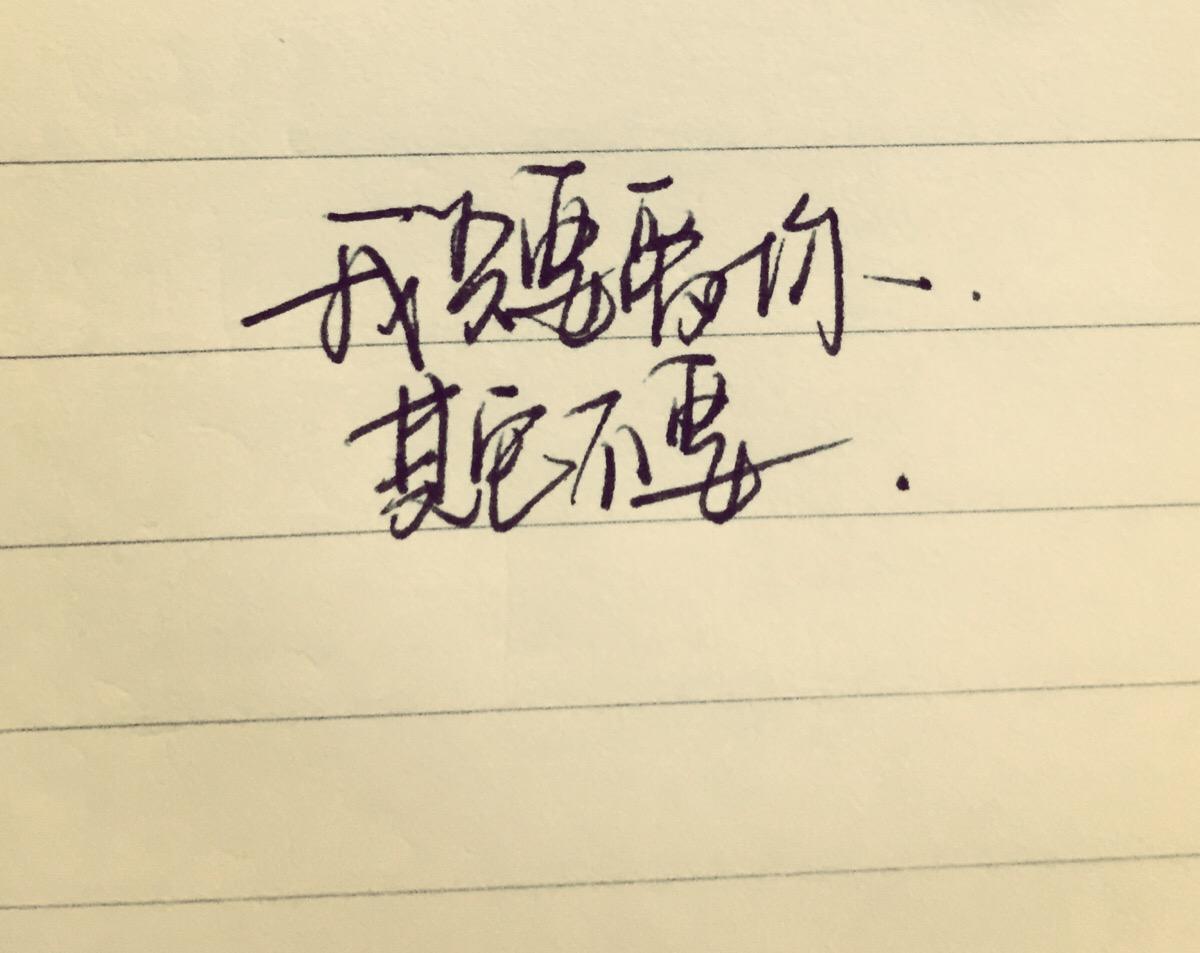 我只要你.
其它不要.